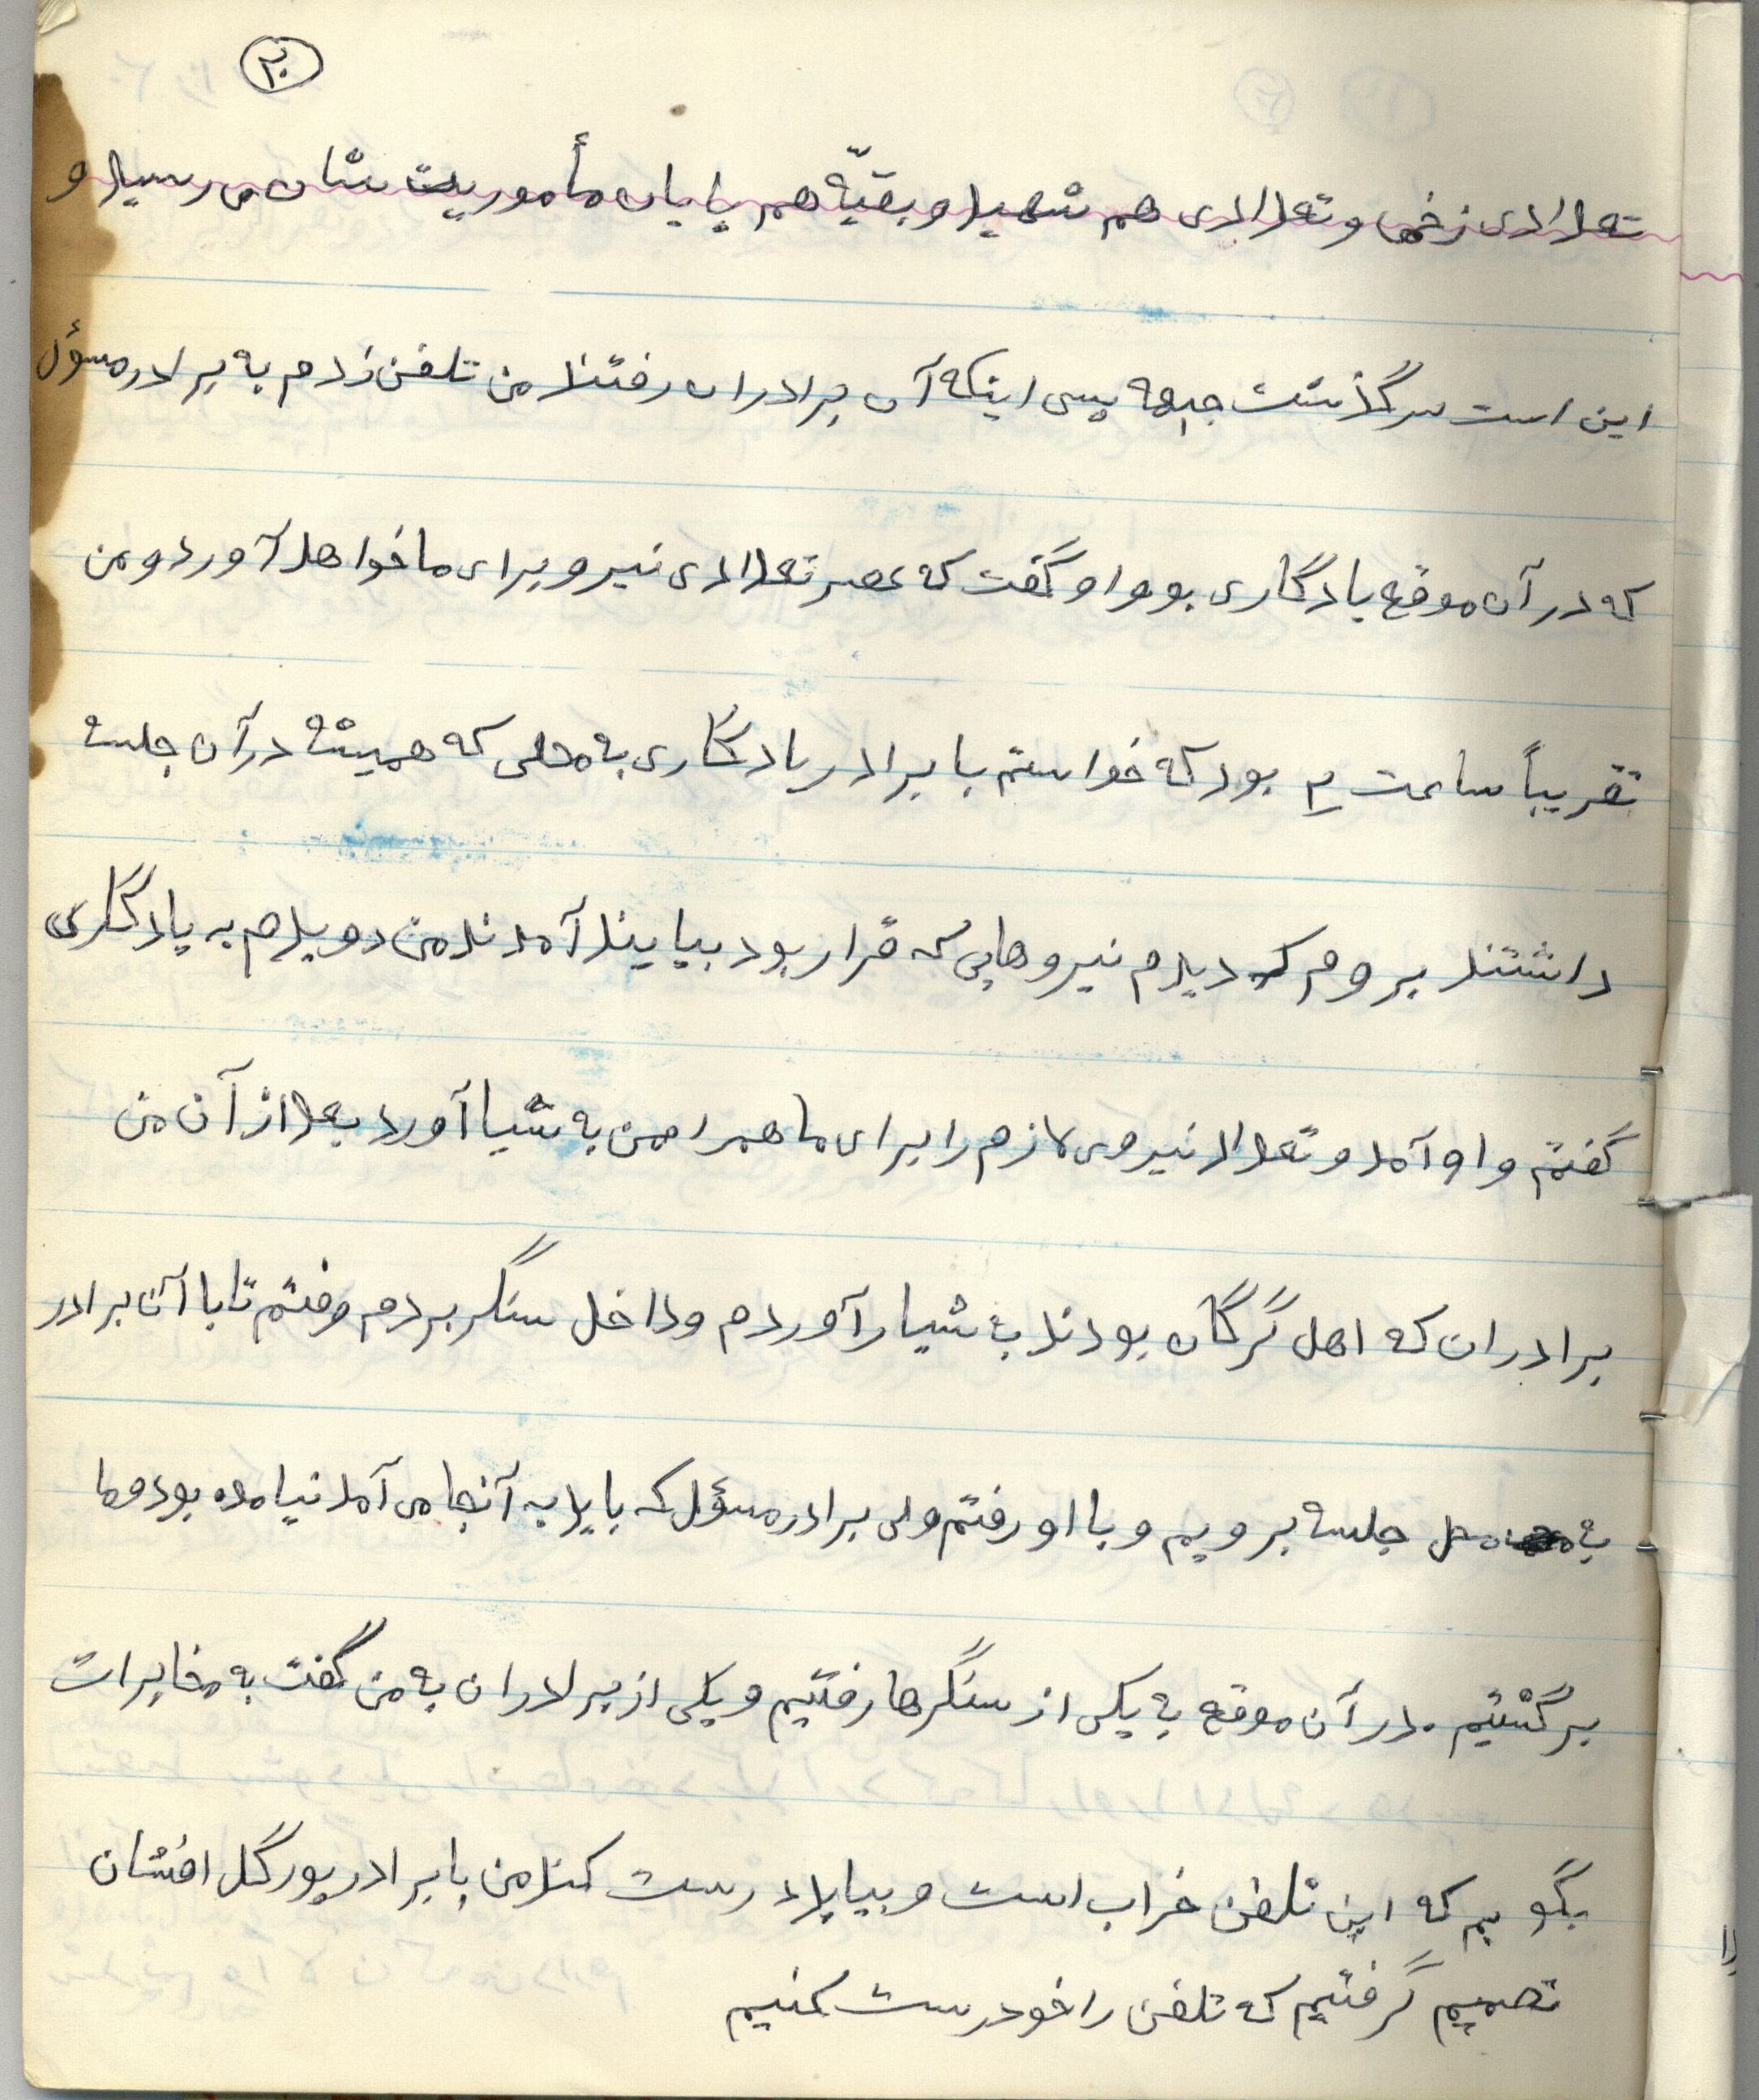 ۲۰
تعدادی زخمی و تعدادی هم شهید و بقیّه هم پایان مأموریت شان می رسید و
این است سرگذشت جبهه پس اینکه آن برادران رفتند من تلفن زدم به برادر مسؤل
که در آن موقع یادگاری بود و او گفت که عصر تعدادی نیرو برای ما خواهد آورد و من
تقریباً ساعت ۴ بود که خواستم با برادر یادگاری به محلی که همیشه در آن جلسه
داشتند بروم که دیدم نیروهایی که قرار بود بیایند آمدند من دویدم به یادگاری
گفتم و او آمد و تعداد نیروی لازم را برای ما همراه من به شیا آورد بعد از آن من
برادران که اهل گرگان بودند به شیار آوردم و داخل سنگر بردم و رفتم تا با آن برادر
به محل جلسه برویم و با او رفتم ولی برادر مسؤل که باید به آنجا می آمد نیامده بود و ما
برگشتیم . در آن موقع به یکی از سنگرها رفتیم و یکی از برادران به من گفت به مخابرات
بگویم که این تلفن خراب است و بیاید درست کند من با برادر پورگل افشان
تصمیم گرفتیم که تلفن را خود درست کنیم